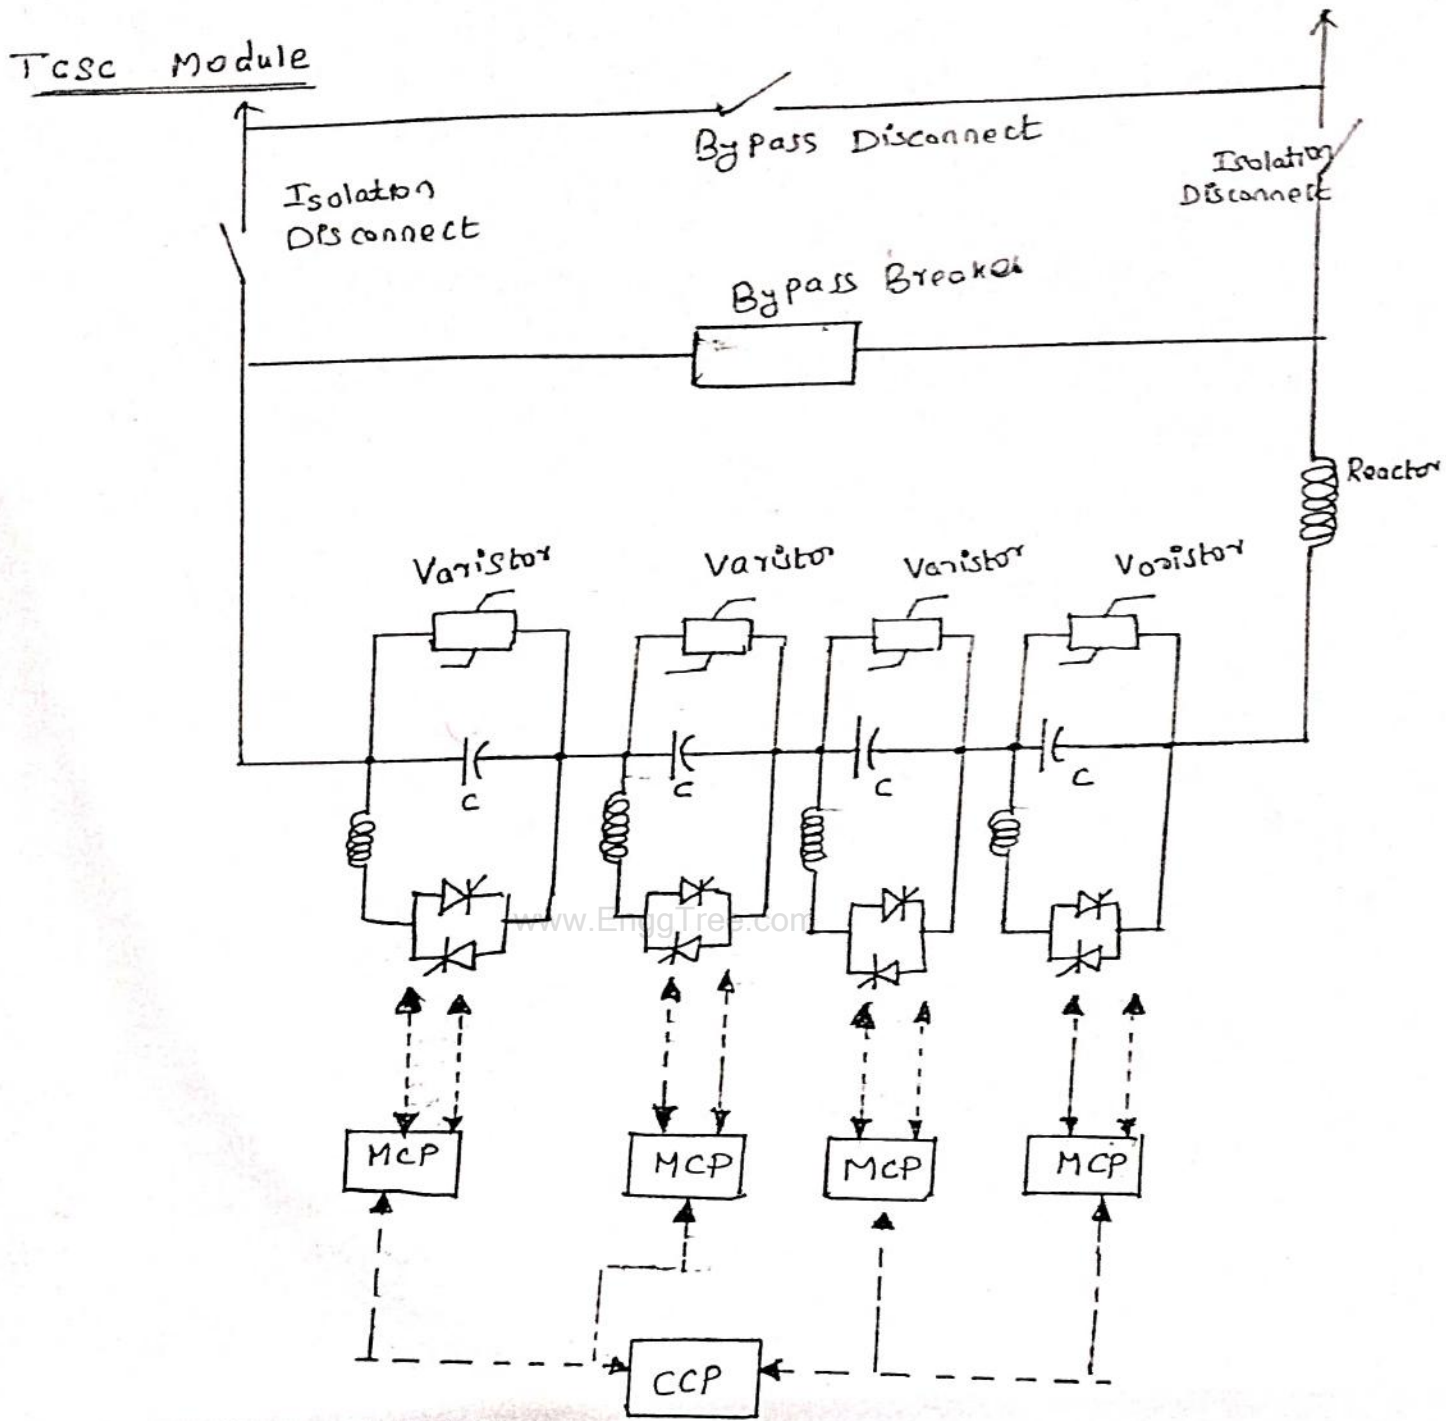 Tcsc Module
Bypass Disconnect
Isolation
Disconnect
Isolation
Disconnect
Bypass Breaker
Reactor
Varistor
Varistor
Varistor
Varistor
C
C
C
C
www.EnggTree.com
MCP
MCP
MCP
MCP
CCP